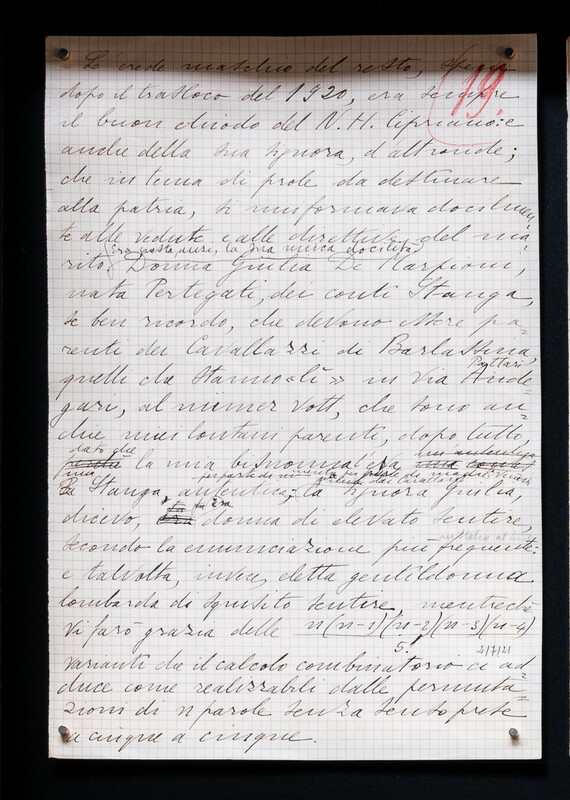 L'erede maschio del resto, specie
19.
dopo il trasloco del 1920, era sempre
il buon chiodo del N. H. Cipriano: e
anche della sua signora, d'altronde;
che in tema di prole da destinare
alla patria, si uniformava docilmen-
te alle vedute e alle direttive del ma-
era posta, anzi, la sua unica docilità
rito. Donna Giulia De Marpioni,
nata Pertegati, dei conti Stanga,
se ben ricordo, che devono essere pa-
renti dei Cavallazzi di Barlassina,
Pattari
quelli che stanno «lì» in Via Ande-
gari, al numer vott, che sono an-
che miei lontani parenti, dopo tutto,
dato che
la mia bisnonna era
una
Stanga autentica, la signora Giulia
era
dicevo, donna di elevato sentire,
secondo la enunciazione più frequente:
e talvolta, invece, eletta gentildonna
lombarda di squisito sentire, mentreché
vi farò grazia delle n(n-1)(n-2)(n-3)(n-4)
5!
2/7/21
varianti che il calcolo combinatorio ci ad-
duce come realizzabili dalle permuta-
zioni di n parole senza senso prese
a cinque a cinque.